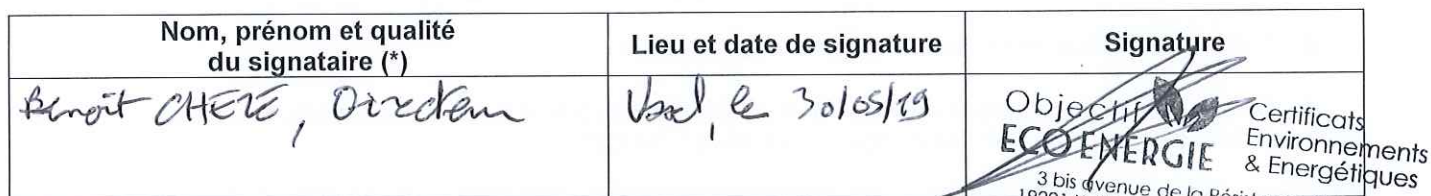 Nom, prénom et qualité
du signataire (*)
Lieu et date de signature
Signature
Benoît CHEZE, Directeur
Ussel, le 30/05/19
Objectif
ECO ENERGIE
Certificats
Environnements
& Energétiques
3 bis avenue de la